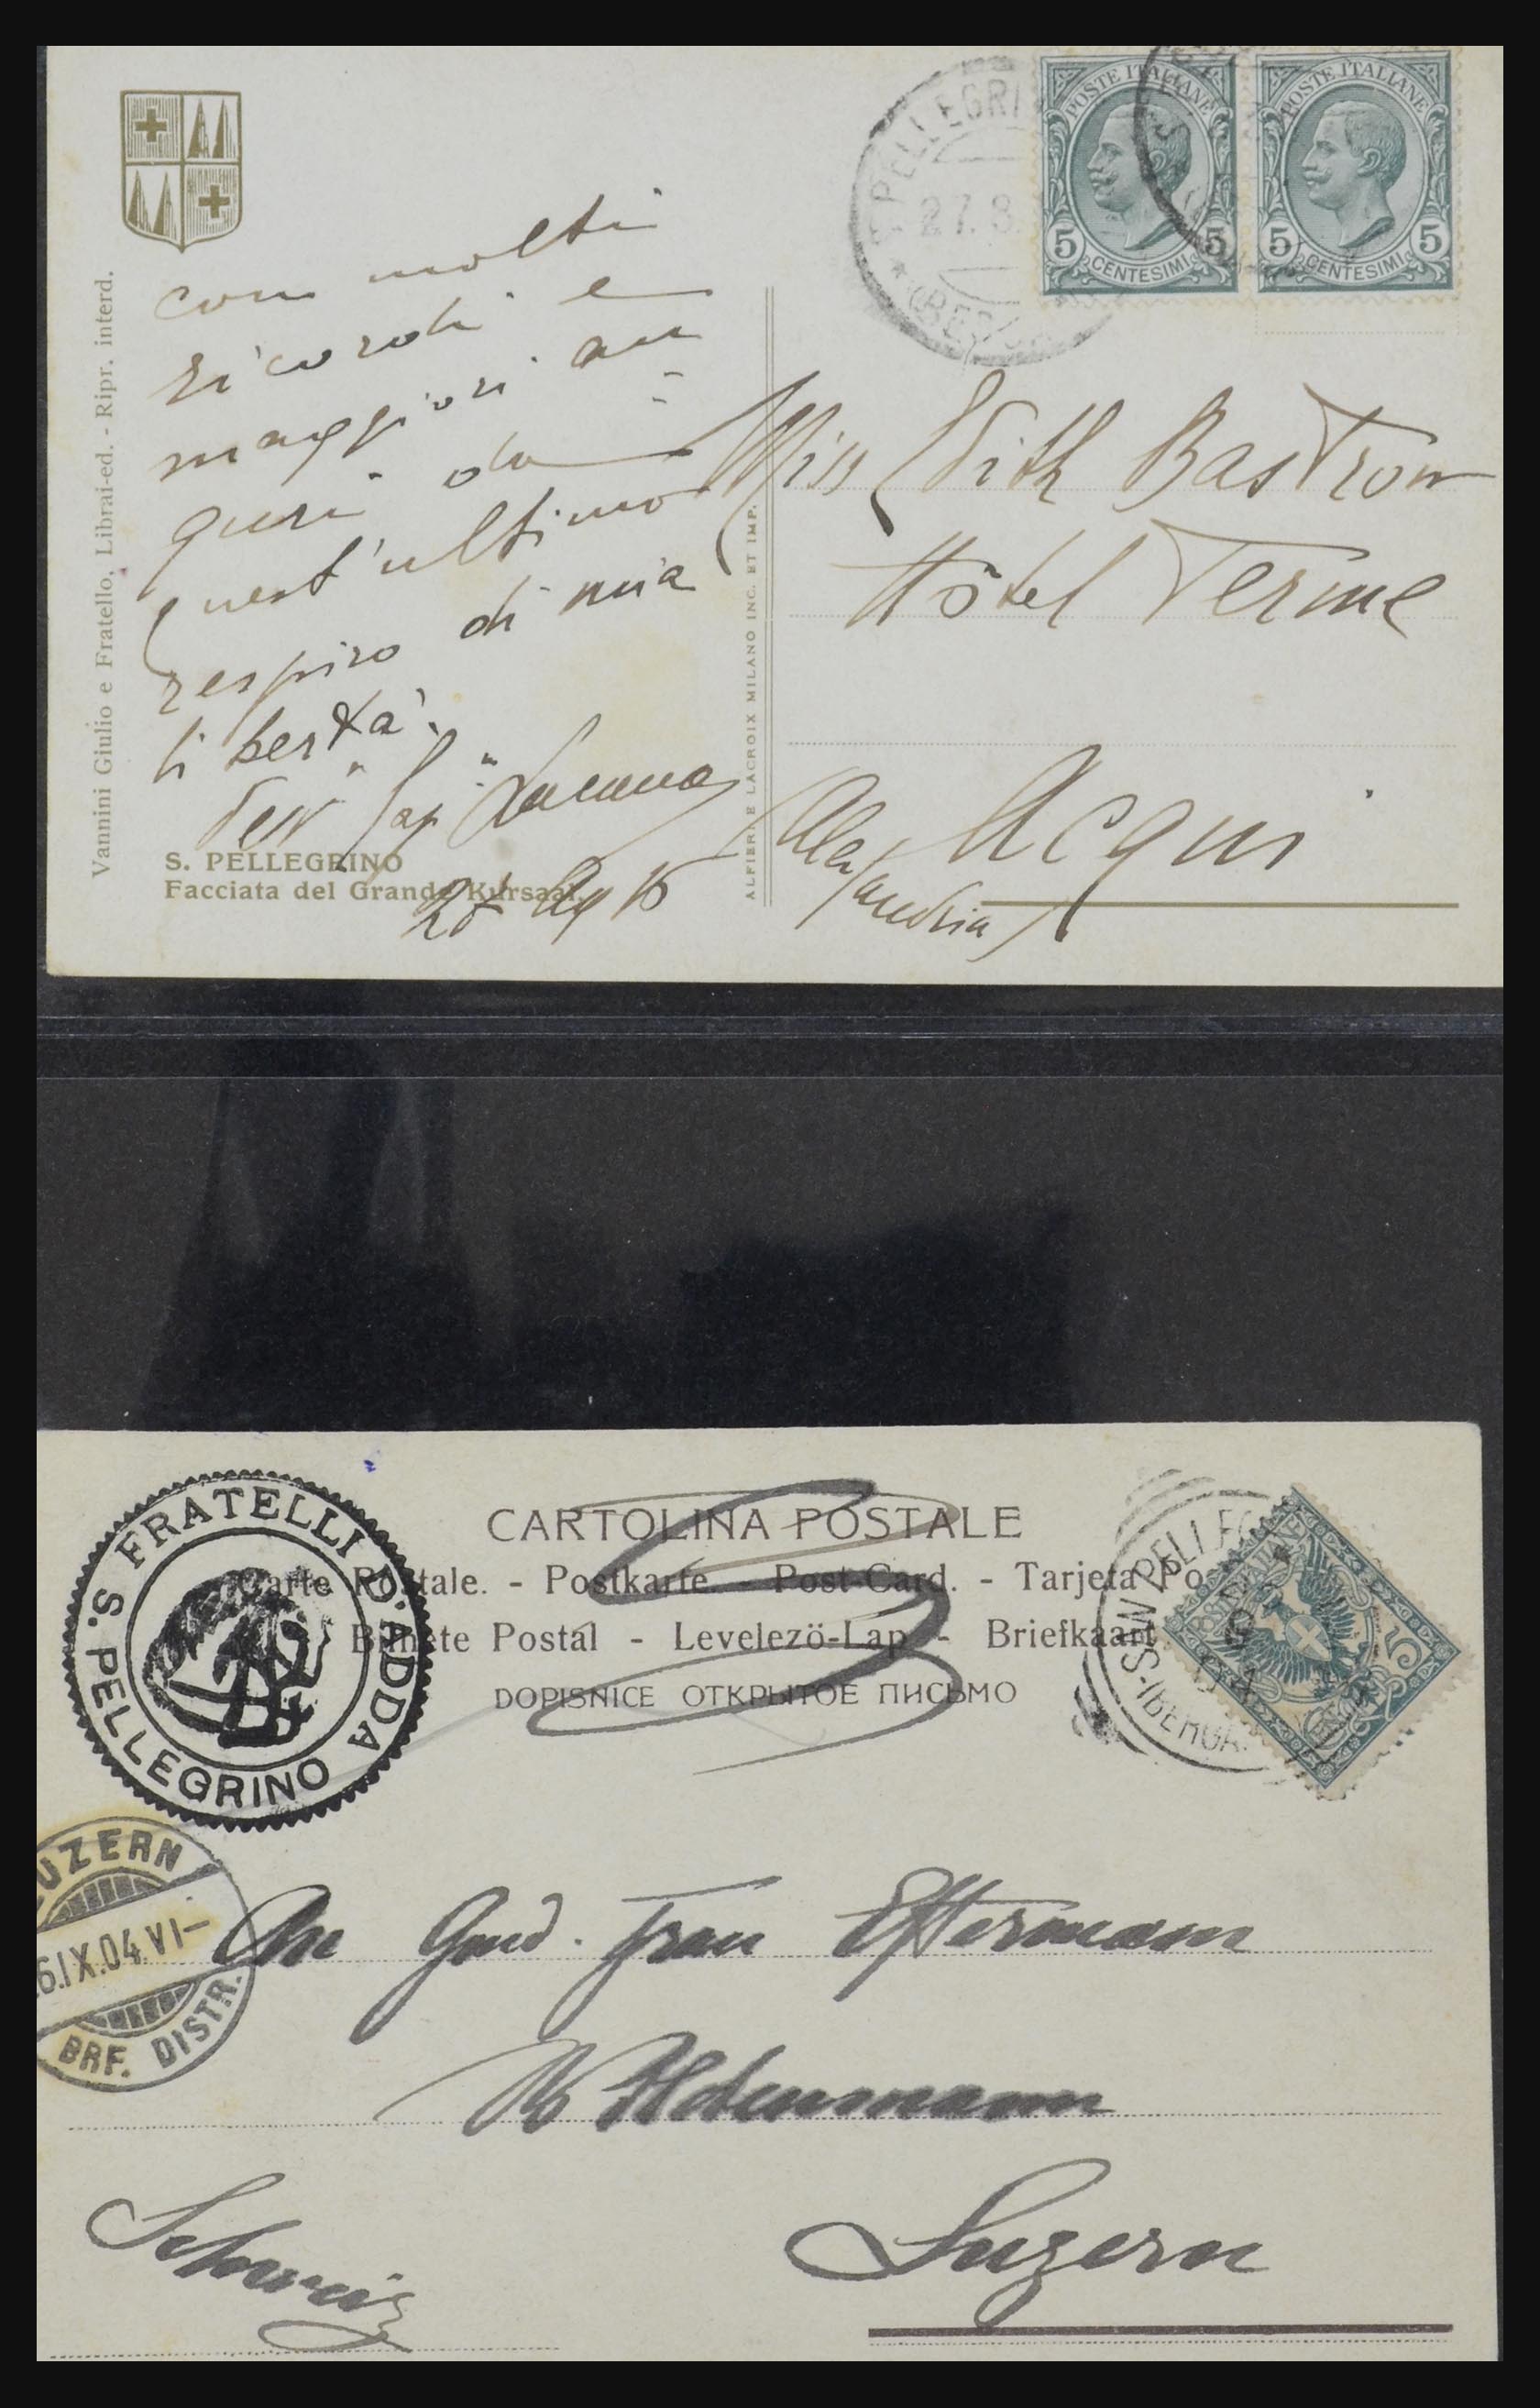 Vannini Giulio e Fratello, Librai-ed. - Ripr. interd.
con molti
ricordi e
maggiori au=
guri da
quest'ultimo
respiro di mia
libertà.
S. PELLEGRINO
Facciata del Grande Kursaal.
27 Ag 15
ALFIERI E LACROIX MILANO INC. ET IMP.
S. PELLEGRI
27.8.
POSTE ITALIANE
5 CENTESIMI 5
POSTE ITALIANE
5 CENTESIMI 5
Miss Edith Bastrom
Hôtel Terme
Acqui
Alessandria
FRATELLI D'ADDA
S. PELLEGRINO
CARTOLINA POSTALE
Carte Postale. - Postkarte. - Post-Card. - Tarjeta Po
Bilhete Postal - Levelezö-Lap - Briefkaart
DOPISNICE ОТКРЫТОЕ ПИСЬМО
5
UZERN
6.IX.04.VI-
BRF. DISTR.
An Gnd. Frau Estermann
Luzern
Schweiz